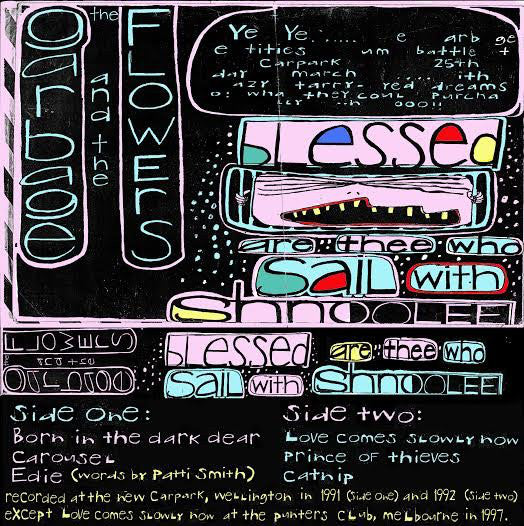 the
Garbage
and the
Flowers
Ye Ye
battle
Carpark 25th
day march
starry red dreams
blessed
are thee who
sail with
shnooLEE!
Flowers
and the
Garbage
blessed are thee who
sail with shnooLEE!
Side one:
Born in the dark dear
Carousel
Edie (words by Patti Smith)
Side two:
Love comes slowly now
Prince of thieves
Catnip
recorded at the new Carpark, wellington in 1991 (side one) and 1992 (side two)
eXcept Love comes slowly now at the punters club, melbourne in 1997.